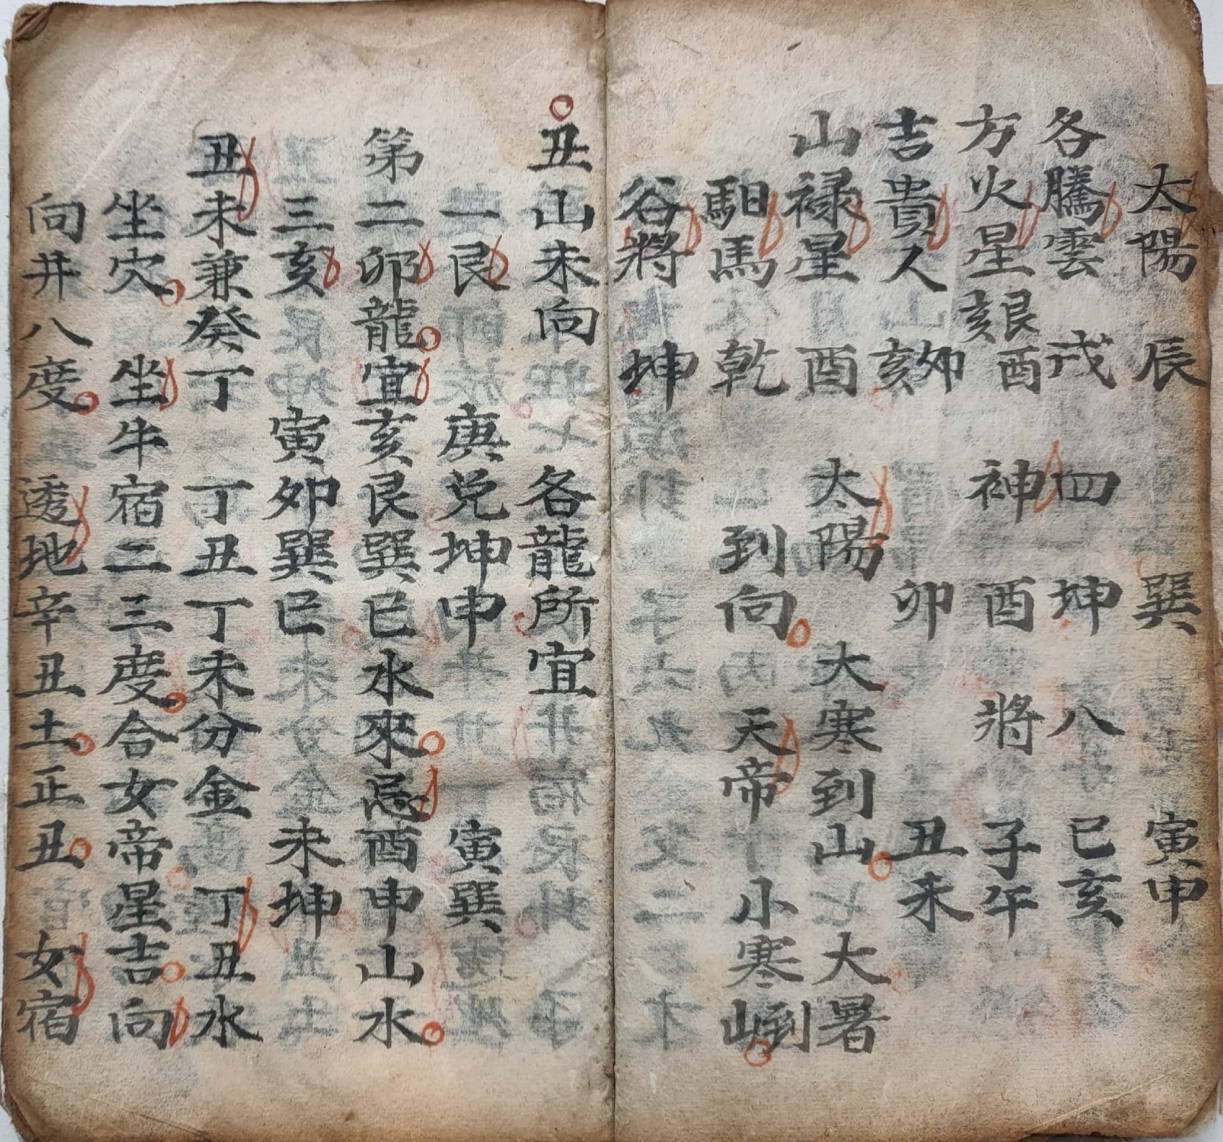 太陽 辰 巽 寅申
各騰雲 戌 四坤 八 巳亥
方火星 艮亥酉 神酉 將 子午
吉貴人 卯亥 卯 丑未
山禄星 酉 太陽 大寒到山 大暑
馹馬 乾 到向 天帝 小寒到山
谷將 坤
丑山未向 各龍所宜
一艮 庚兑坤申 寅巽
第二卯龍宜亥艮巽巳水來忌酉申山水
三亥 寅卯巽巳 未坤
丑未兼癸丁 丁丑丁未分金 丁丑水
坐穴 坐牛宿二三度合女帝星吉向
向井八度 透地辛丑土正丑 女宿